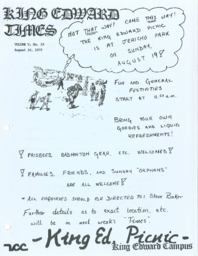 KING EDWARD
TIMES
VOLUME 7, No. 25
August 10, 1979
NOT THAT WAY! CAME THIS WAY!
THE KING EDWARD PICNIC
IS AT JERICHO PARK
ON SUNDAY,
AUGUST 19!
FUN AND GENERAL
FESTIVITIES
START AT 11:00 A.M.
BRING YOUR OWN
GOODIES AND LIQUID
REFRESHMENTS!
! FRISBEES, BADMINTON GEAR, ETC. WELCOMED!
! FAMILIES, FRIENDS, AND SUNDAY "ORPHANS"
ARE ALL WELCOME!
* ALL ENQUIRIES SHOULD BE DIRECTED TO: Steve
Further details as to exact location, etc.
will be in next week's "Times"
VCC - King Ed. Picnic -
King Edward Campus